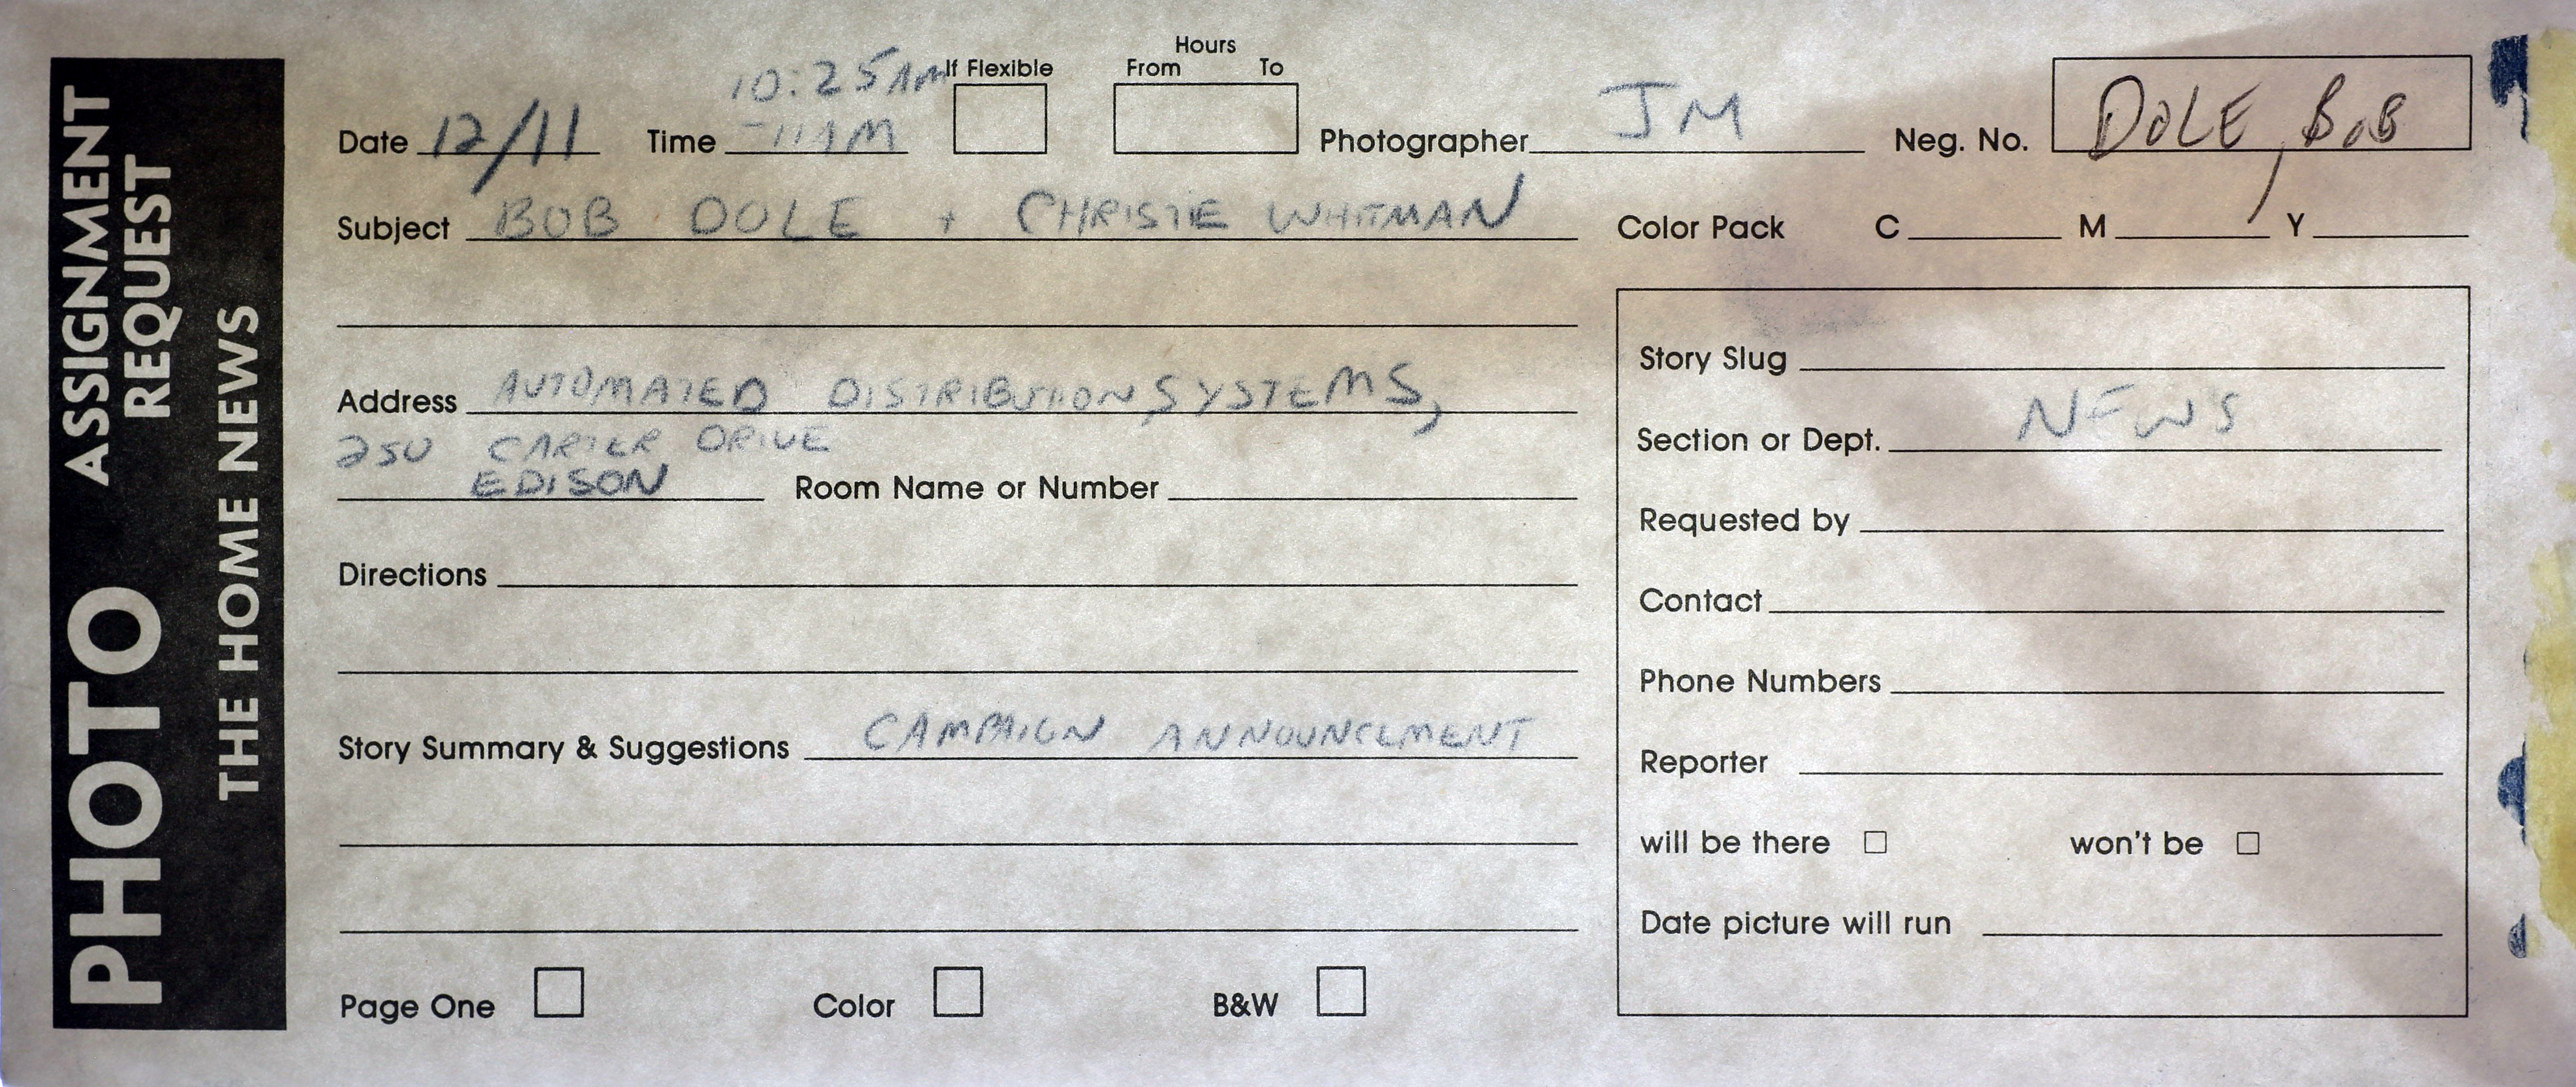 PHOTO ASSIGNMENT REQUEST
THE HOME NEWS
Hours
10:25AM If Flexible From To
Date 12/11 Time -11AM Photographer JM Neg. No. DOLE, BOB
Subject BOB DOLE + CHRISTIE WHITMAN
Color Pack C M Y
Address AUTOMATED DISTRIBUTION SYSTEMS,
250 CARTER DRIVE
EDISON Room Name or Number
Directions
Story Summary & Suggestions CAMPAIGN ANNOUNCEMENT
Page One Color B&W
Story Slug
Section or Dept. NEWS
Requested by
Contact
Phone Numbers
Reporter
will be there won't be
Date picture will run